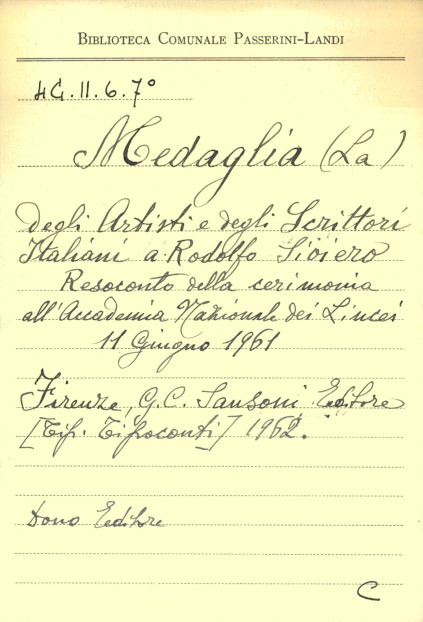 BIBLIOTECA COMUNALE PASSERINI-LANDI
4G.II.6.7°
Medaglia (La)
degli Artisti e degli Scrittori
Italiani a Rodolfo Siviero
Resoconto della cerimonia
all'Accademia Nazionale dei Lincei
11 Giugno 1961
Firenze, G.C. Sansoni Editore
[Tip. Tipoconti] 1962.
Dono Editore
C